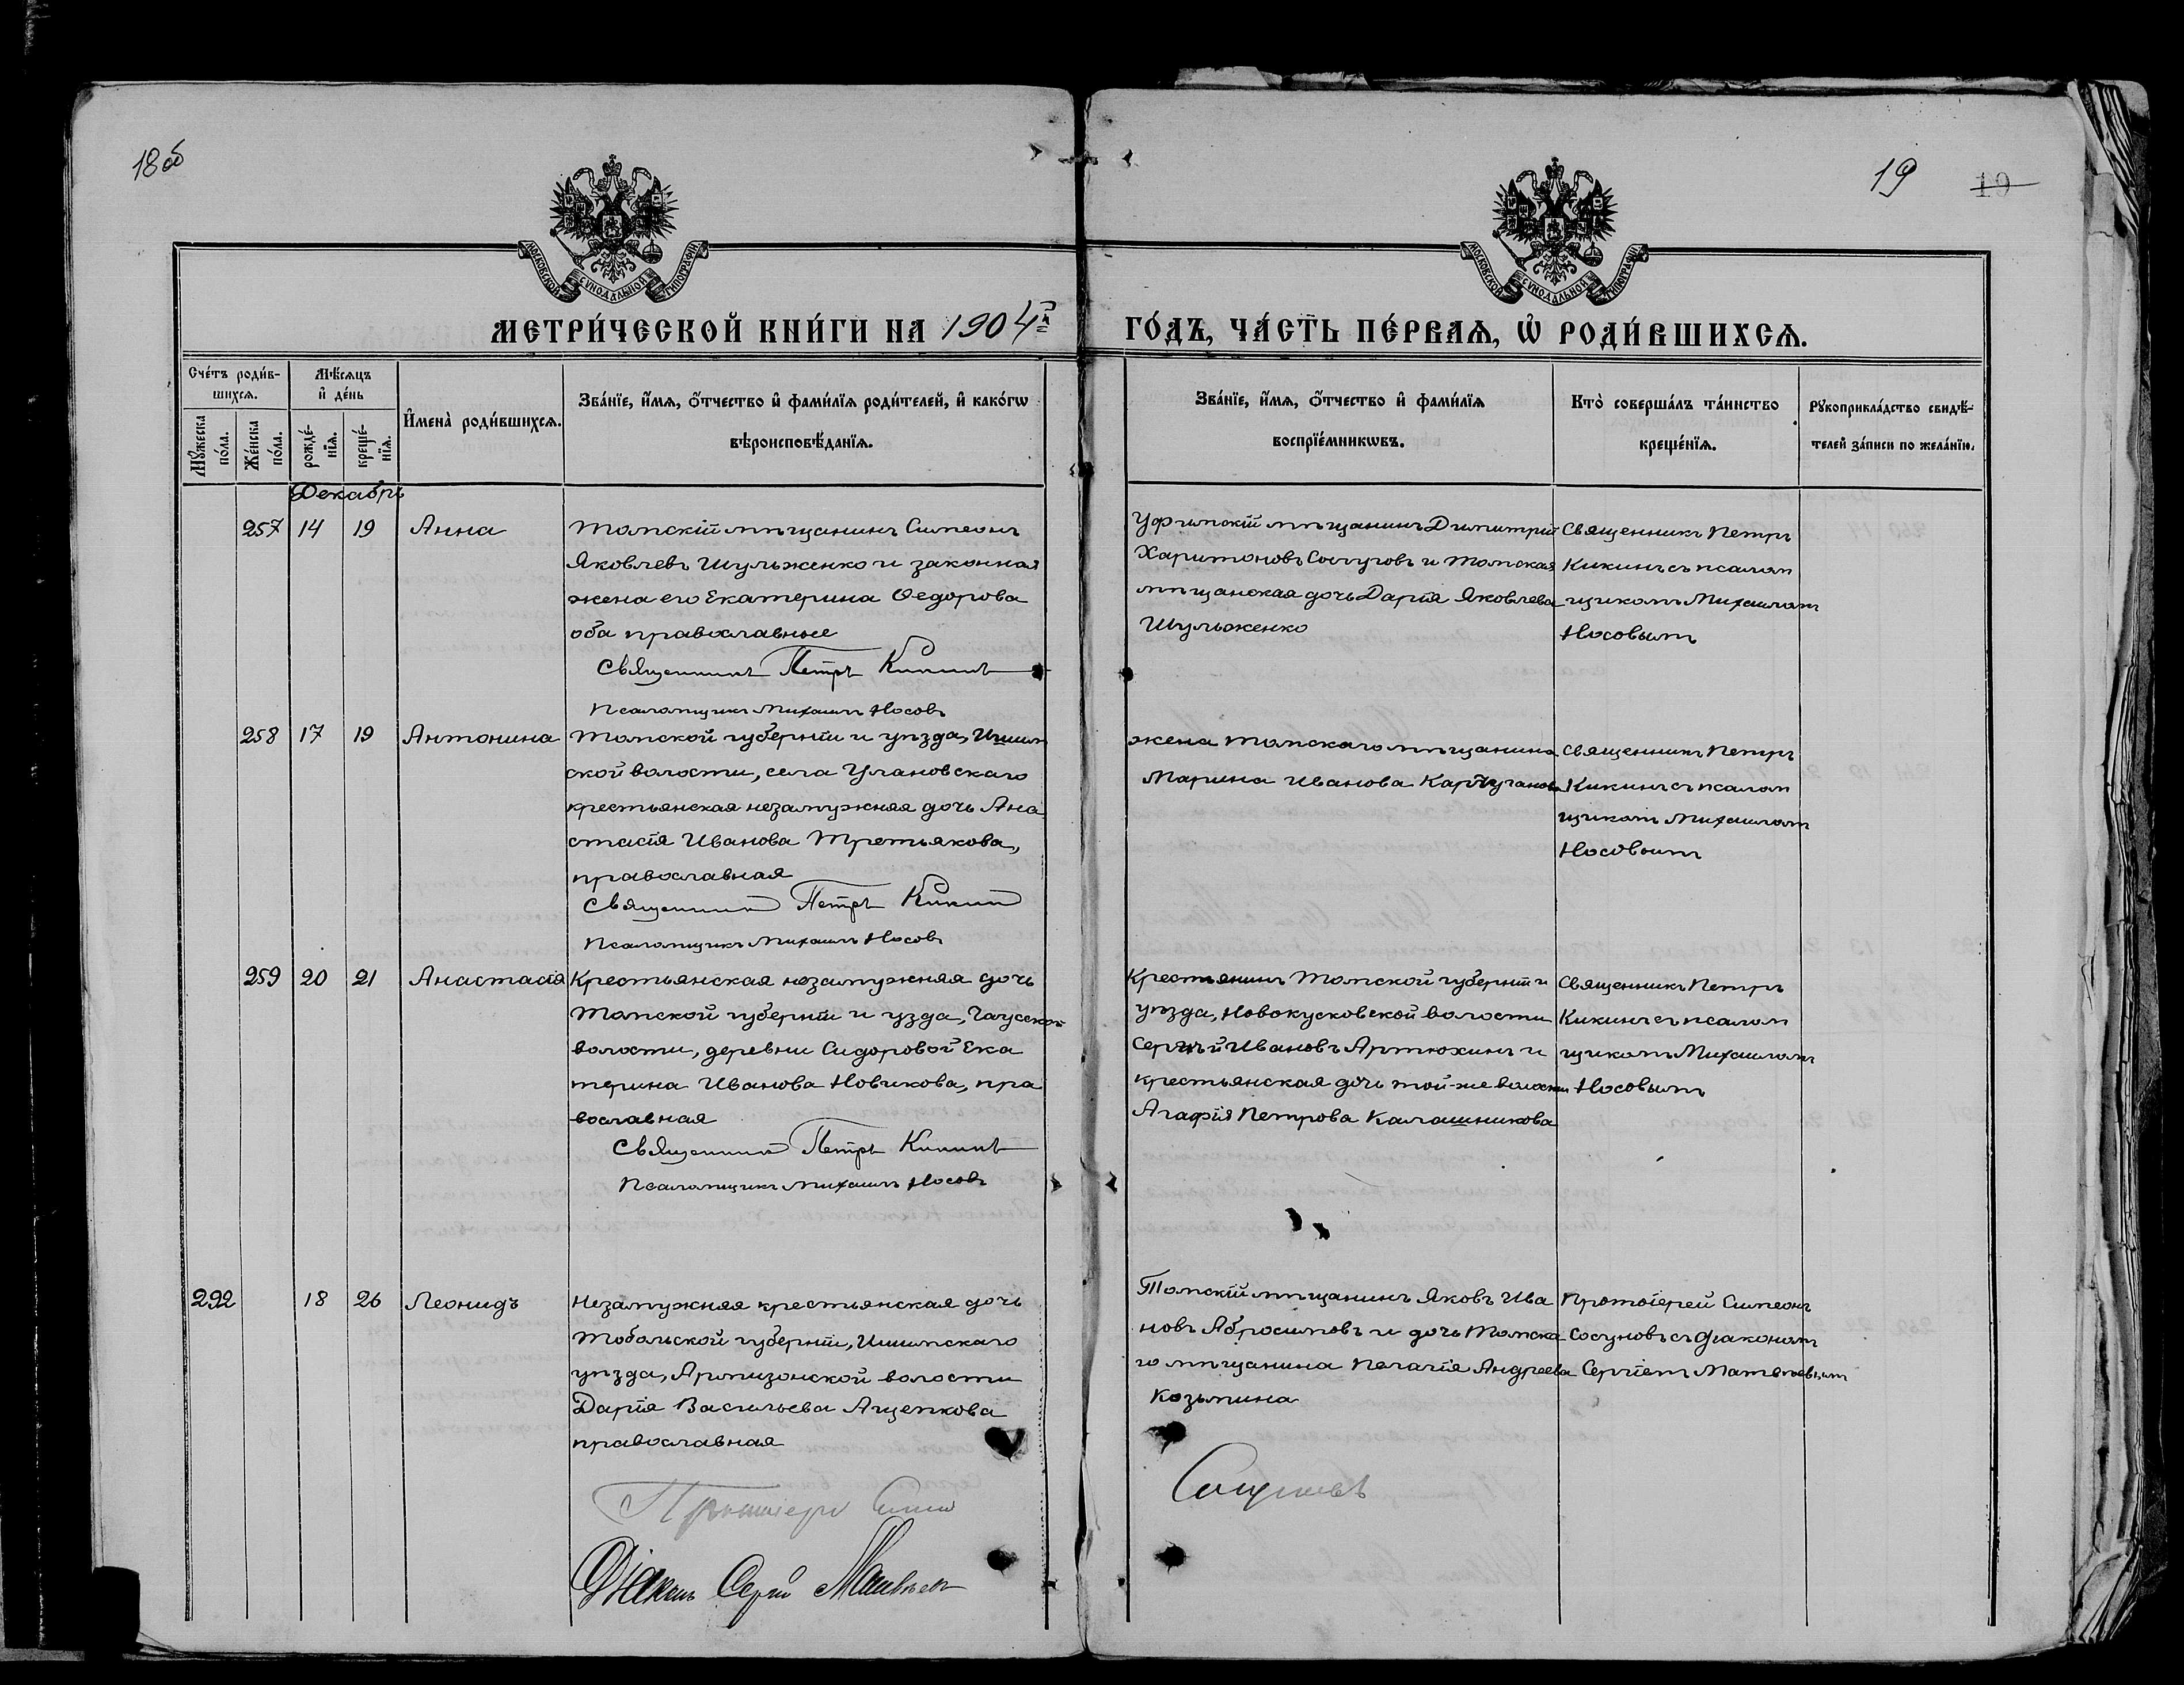 18об
19 19
МОСКОВСКОЙ СѴНОДАЛЬНОЙ ТИПОГРАФІИ
МОСКОВСКОЙ СѴНОДАЛЬНОЙ ТИПОГРАФІИ
МЕТРИ́ЧЕСКОЙ КНИ́ГИ НА 1904й
ГО́ДЪ, ЧА́СТЬ ПЕ́РВАѦ, Ѡ҆ РОДИ́ВШИХСѦ.
Сче́тъ роди́в-
шихсѧ.
Мꙋ́жеска
по́ла.
Же́нска
по́ла.
Мѣ́сѧцъ
и҆ де́нь
рожде́-
нїѧ.
креще́-
нїѧ.
И҆мена̀ роди́вшихсѧ.
Зва́нїе, и҆́мѧ, ѻ҆́тчество и҆ фами́лїѧ роди́телей, и҆ како́гѡ
вѣроисповѣ́данїѧ.
Зва́нїе, и҆́мѧ, ѻ҆́тчество и҆ фами́лїѧ
воспрїе́мникѡвъ.
Кто̀ соверша́лъ та́инство
креще́нїѧ.
Рꙋкоприкла́дство свидѣ́-
телей за́писи по жела́нїю.
Декабрь
257 14 19 Анна
Томскій мѣщанинъ Симеонъ
Яковлевъ Шульженко и законная
жена его Екатерина Ѳедорова
оба православные
Священникъ Петръ Кикинъ
Псаломщикъ Михаилъ Носовъ
Уфимскій мѣщанинъ Димитрій
Харитоновъ и Томская
мѣщанская дочь Дарія Яковлева
Шульженко
Священникъ Петръ
Кикинъ съ псалом
щикомъ Михаиломъ
Носовымъ
258 17 19 Антонина
Томской губерніи и уѣзда, Ишим
ской волости, села Улановскаго
крестьянская незамужняя дочь Ана
стасія Иванова Третьякова,
православная
Священникъ Петръ Кикинъ
Псаломщикъ Михаилъ Носовъ
жена Томскаго мѣщанина
Марина Иванова
Священникъ Петръ
Кикинъ съ псалом
щикомъ Михаиломъ
Носовымъ
259 20 21 Анастасія
Крестьянская незамужняя дочь
Томской губерніи и узда, Чаусской
волости, деревни Сидоровой Ека
терина Иванова Новикова, пра
вославная
Священникъ Петръ Кикинъ
Псаломщикъ Михаилъ Носовъ
Крестьянинъ Томской губерніи и
уѣзда, Новокусковской волости
Сергѣй Ивановъ Артюхинъ и
крестьянская дочь той-же волости
Агафія Петрова Калашникова
Священникъ Петръ
Кикинъ съ псалом
щикомъ Михаиломъ
Носовымъ
292 18 26 Леонидъ
Незамужняя крестьянская дочь
Тобольской губерніи, Ишимскаго
уѣзда, Армизонской волости
Дарія Васильева Ащепкова
православная
Протоіерей Симеонъ
Діаконъ Сергій Матвѣевъ
Томскій мѣщанинъ Яковъ Ива
новъ Абросимовъ и дочь Томска
го мѣщанина Пелагія Андреева
Козьмина
Сосуновъ
Протоіерей Симеонъ
Сосуновъ съ діакономъ
Сергіемъ Матвѣевымъ